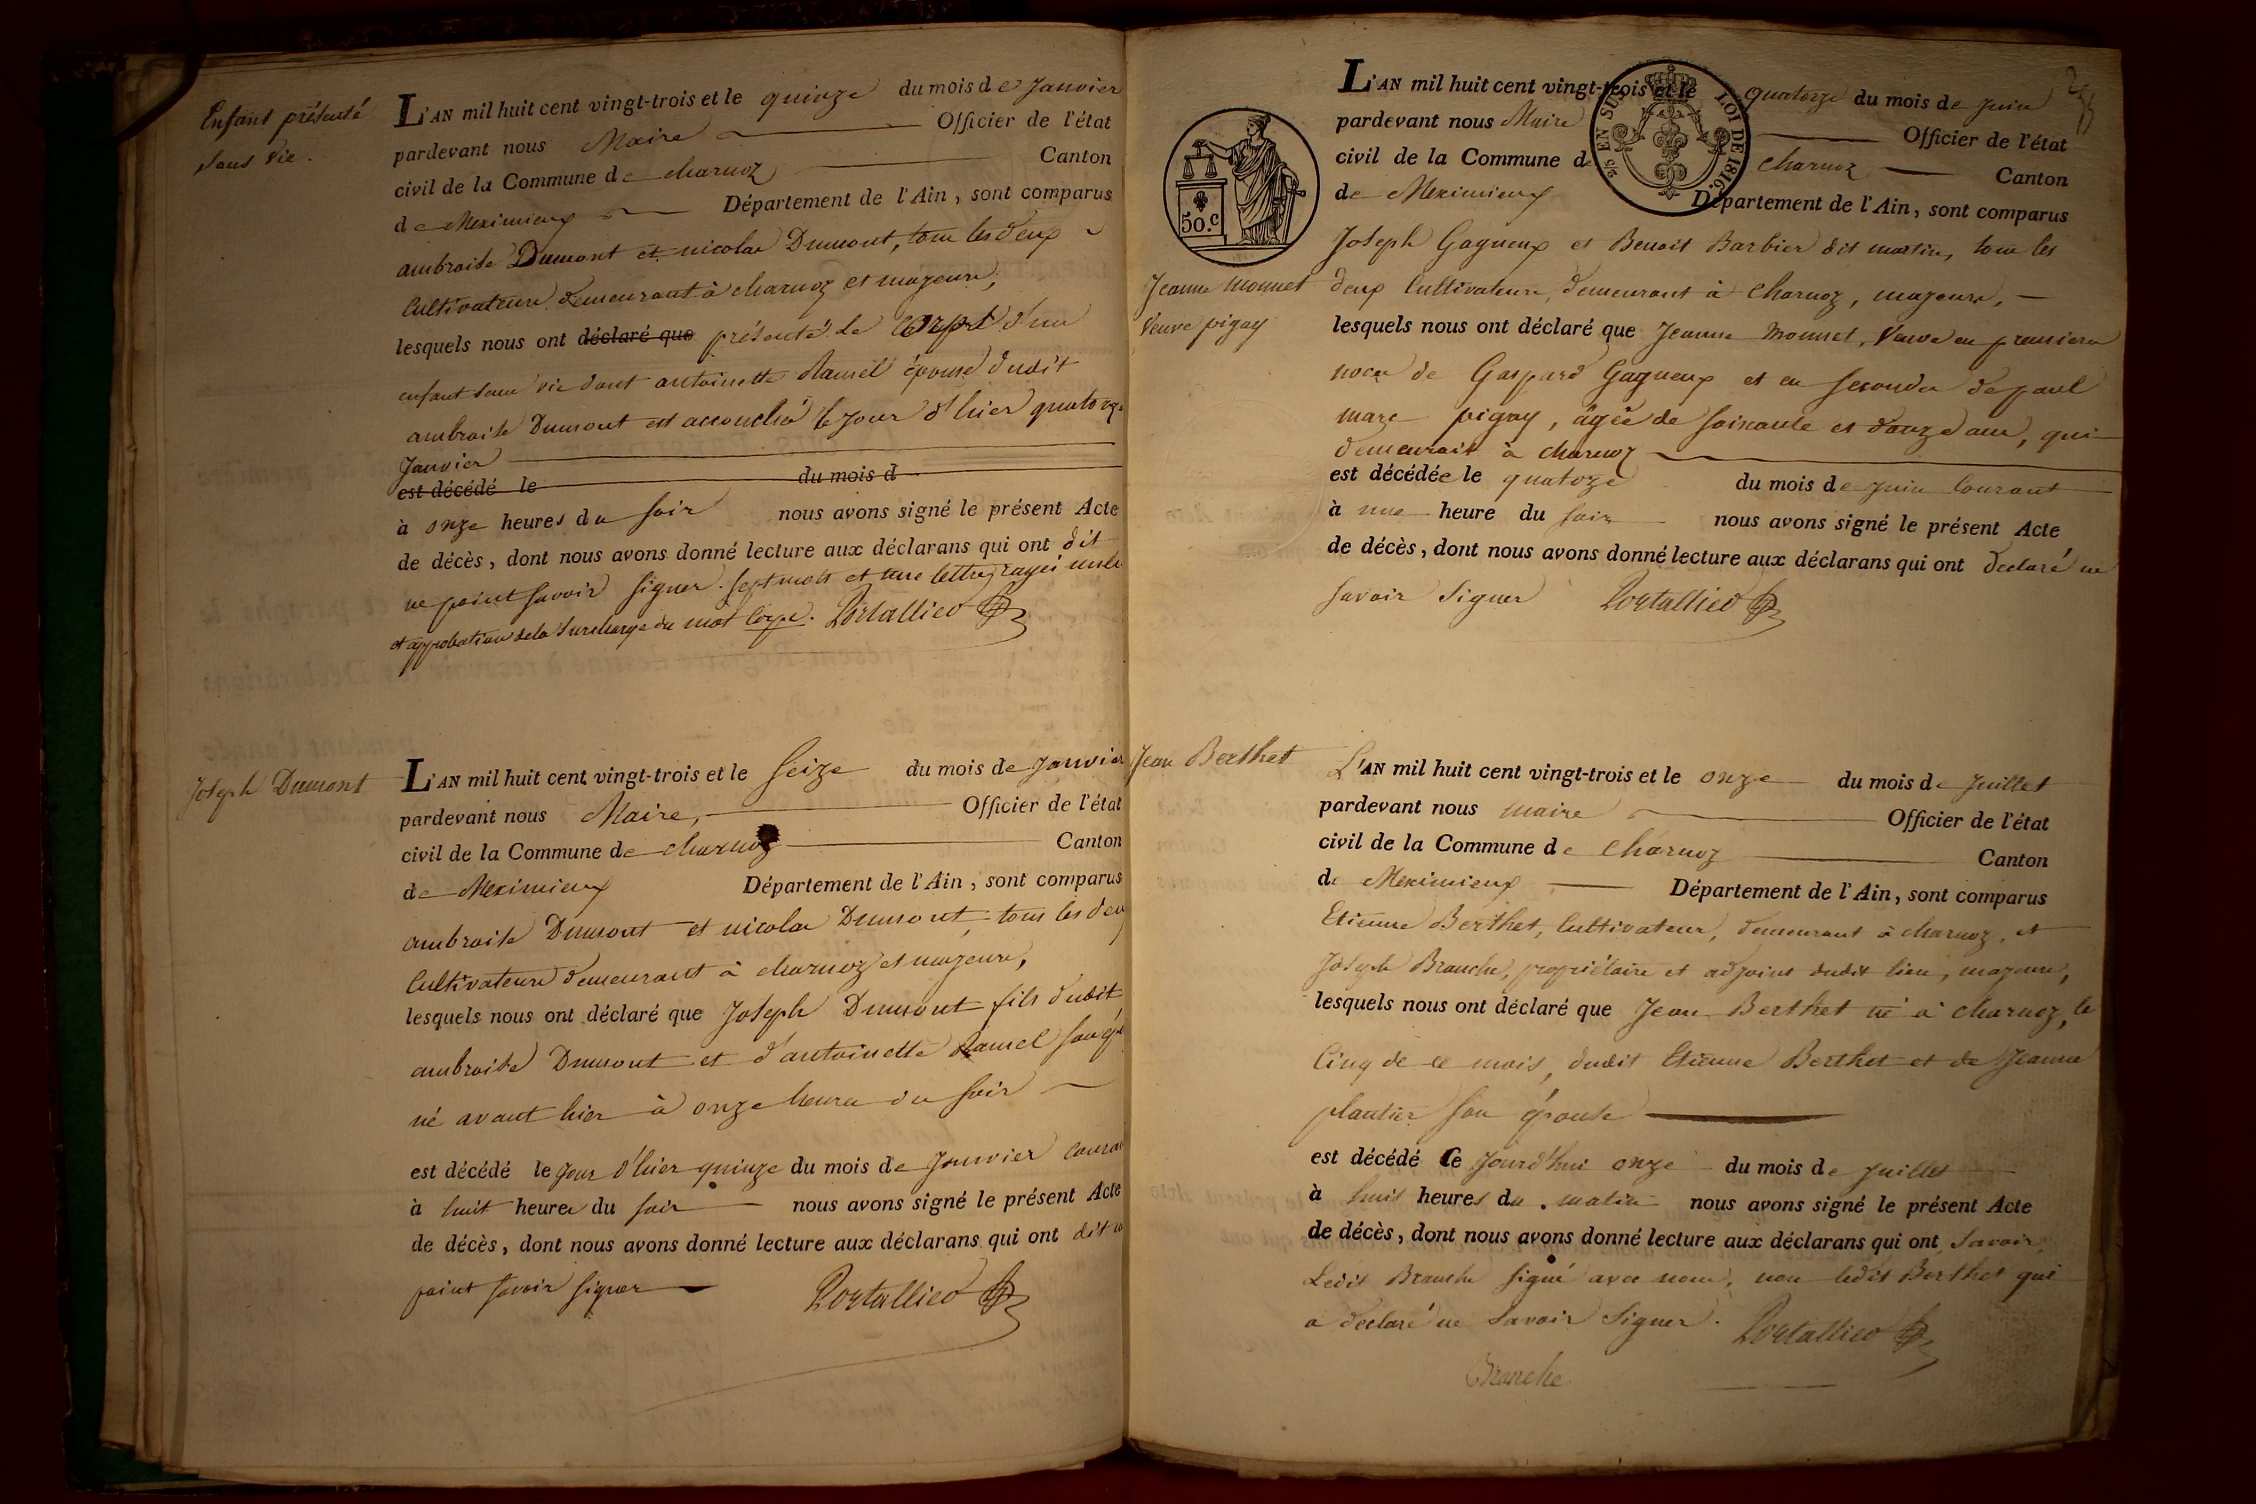 Enfant présenté
sans vie.
L'AN mil huit cent vingt-trois et le quinze du mois de Janvier
pardevant nous Maire Officier de l'état
civil de la Commune de charnoz Canton
de Meximieux Département de l'Ain, sont comparus
ambroise Dumont et nicolas Dumont, tous les deux
Cultivateurs demeurant à charnoz et majeurs,
lesquels nous ont déclaré que présenté le Corps d'un
enfant sans vie dont antoinette Ramel épouse dudit
ambroise Dumont est accouchée le jour d'hier quatorze
Janvier
est décédé le du mois d
à onze heures du soir nous avons signé le présent Acte
de décès, dont nous avons donné lecture aux déclarans qui ont dit
ne point savoir signer. sept mots et une lettre rayés nuls
et approbation de la surcharge du mot Corps. Portallier
Joseph Dumont
L'AN mil huit cent vingt-trois et le seize du mois de janvier
pardevant nous Maire, Officier de l'état
civil de la Commune de charnoz Canton
de Meximieux Département de l'Ain, sont comparus
ambroise Dumont et nicolas Dumont, tous les deux
Cultivateurs demeurant à charnoz et majeurs,
lesquels nous ont déclaré que Joseph Dumont fils dudit
ambroise Dumont et d'antoinette Ramel son
né avant hier à onze heures du soir
est décédé le jour d'hier quinze du mois de Janvier
à huit heures du soir nous avons signé le présent Acte
de décès, dont nous avons donné lecture aux déclarans qui ont dit
point savoir signer Portallier
50.c
EN SUS
LOI DE 1816.
Jeanne Monnet
Veuve pigay
L'AN mil huit cent vingt-trois et le quatorze du mois de juin
pardevant nous Maire Officier de l'état
civil de la Commune de charnoz Canton
de Meximieux Département de l'Ain, sont comparus
Joseph Gagneux et Benoit Barbier dit martin, tous les
deux Cultivateurs, demeurant à Charnoz, majeurs,
lesquels nous ont déclaré que Jeanne Monnet, Veuve en premiere
noce de Gaspard Gagneux et en seconde de paul
marc pigay, âgée de soixante et douze ans, qui
demeurait à charnoz
est décédée le quatorze du mois de juin Courant
à une heure du soir nous avons signé le présent Acte
de décès, dont nous avons donné lecture aux déclarans qui ont declaré ne
savoir signer Portallier
Jean Berthet
L'AN mil huit cent vingt-trois et le onze du mois de juillet
pardevant nous maire Officier de l'état
civil de la Commune de Charnoz Canton
de Meximieux Département de l'Ain, sont comparus
Etienne Berthet, Cultivateur, demeurant à charnoz, et
Joseph Branche, propriétaire et adjoint dudit lieu, majeurs,
lesquels nous ont déclaré que Jean Berthet né à charnoz, le
Cinq de ce mois, dudit Etienne Berthet et de Jeanne
plantier son épouse
est décédé Ce jourd'hui onze du mois de juillet
à huit heures du matin nous avons signé le présent Acte
de décès, dont nous avons donné lecture aux déclarans qui ont savoir
Ledit Branche signé avec nous, non ledit Berthet qui
a declaré ne savoir signer. Portallier
Branche